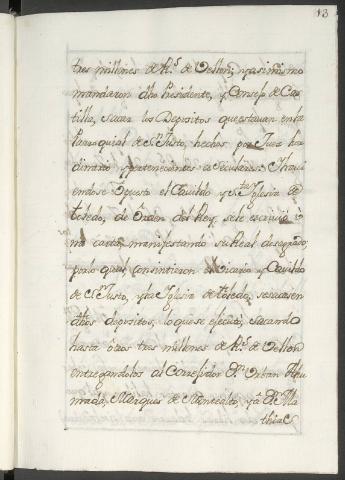 13
tres millones de R.^s de Vellon; y asimismo
mandaron dho Presidente, y Consejo de Cas
tilla, sacar los Depositos que estauan en la
Parroquial de S.^n Justo, hechos por Juez hor
dinario, y pertenecientes a Seculares: Y hauí
endose opuesto el Cauildo y S.^ta Iglesia de
toledo, de Orden del Rey se le escriuió v
na carta, manifestando su Real desagrado;
por lo qual consintieron el Vicario y Cauildo
de S.^n Justo, y la Iglesia de toledo, se sacasen
dhos depositos, lo que se ejecutó, sacando
hasta otros tres millones de R.^s de Vellon
entregandolos al Corregidor D.^n Urban Ahu
mada, Marques de Montealto, y a D.^n Ma
thias